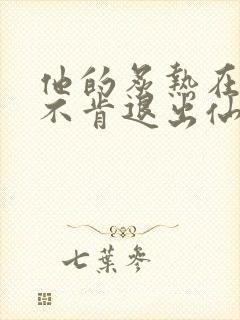 他的炙热在
不肯退出仙
七葉參